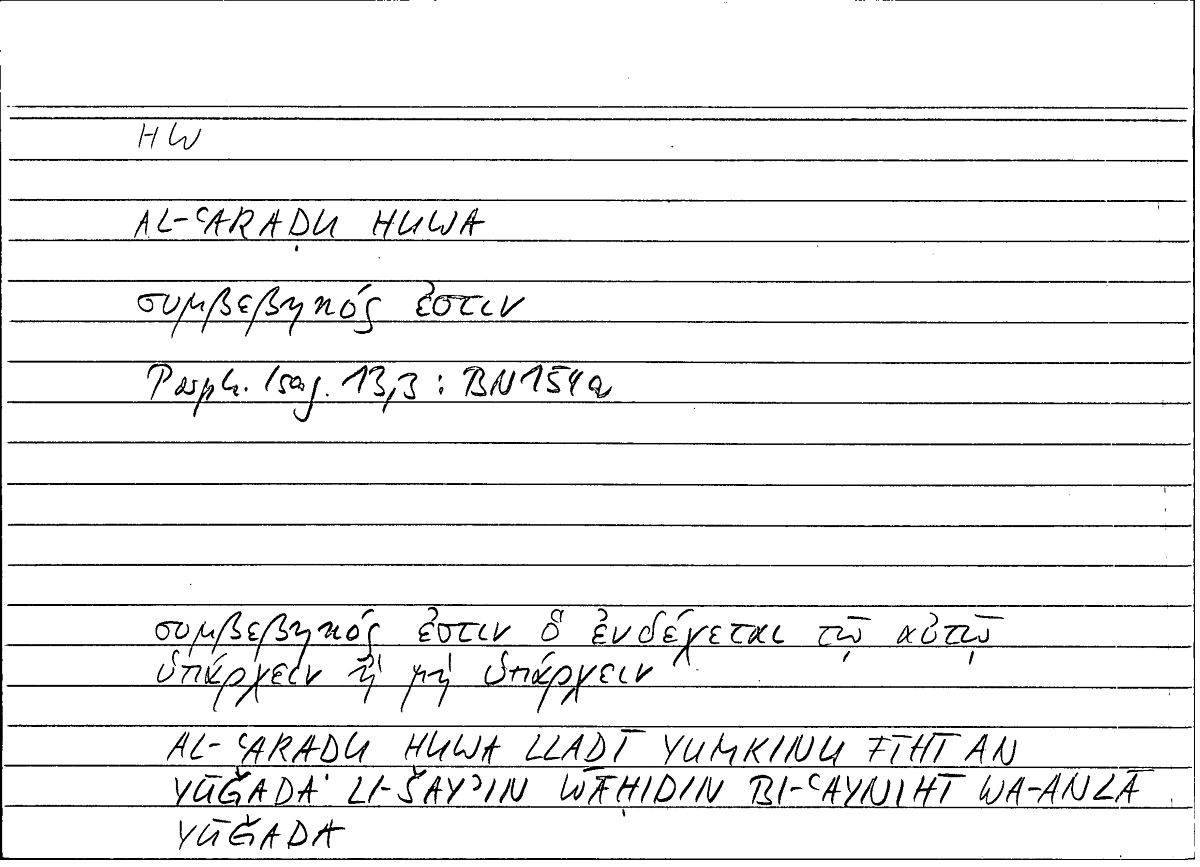 HW
AL-ʿARAḌU HUWA
συμβεβηκός ἐστιν
Porph. Isag. 13,3 : BN154a
συμβεβηκός ἐστιν ὃ ἐνδέχεται τῷ αὐτῷ
ὑπάρχειν ἢ μὴ ὑπάρχειν
AL-ʿARADU HUWA LLADĪ YUMKINU FĪHĪ AN
YŪǦADA LI-ŠAYʾIN WĀḤIDIN BI-ʿAYNIHĪ WA-ANLĀ
YŪǦADA